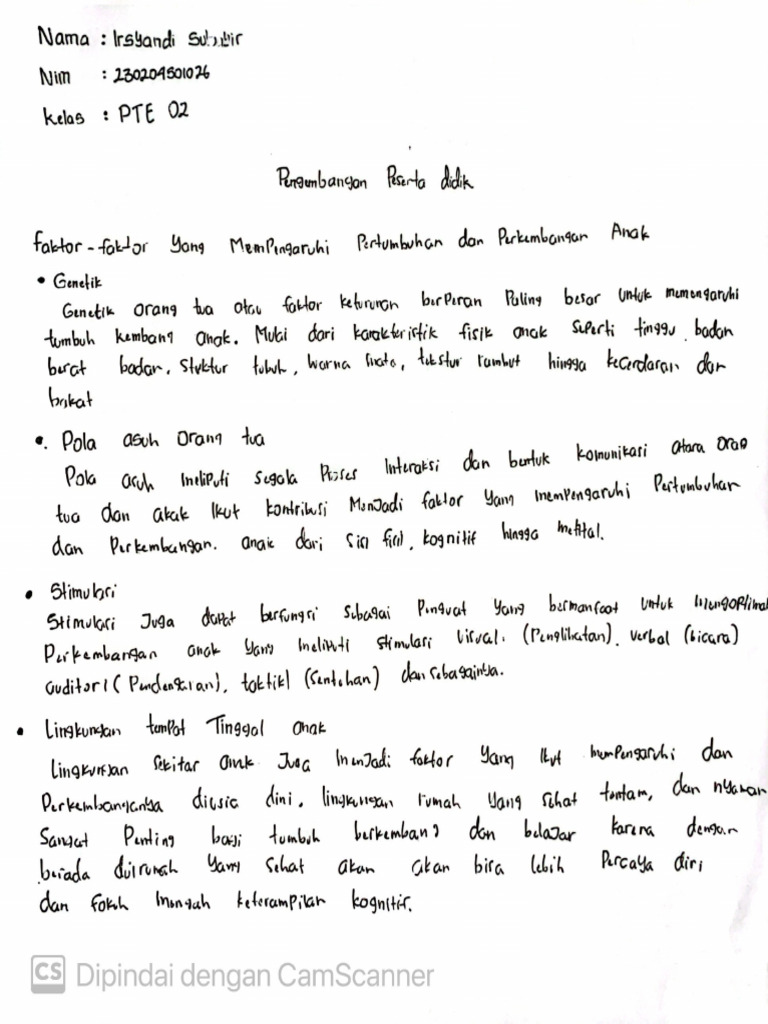 Nama : Irsyandi Subbir
Nim : 230204501026
Kelas : PTE 02
Pengembangan Peserta didik
faktor-faktor Yang MemPengaruhi Pertumbuhan dan Perkembangan Anak
• Genetik
Genetik orang tua atau faktor keturunan berperan Paling besar untuk memengaruhi
tumbuh kembang anak. Mulai dari karakteristik fisik anak seperti tinggi badan
berat badan, stuktur tubuh, warna mata, tekstur rambut hingga kecerdasan dan
bakat
•. Pola asuh orang tua
Pola asuh meliputi segala Proses Interaksi dan bentuk komunikasi atara orag
tua dan akak Ikut kontribusi Menjadi faktor Yang mempengaruhi Pertumbuhan
dan Perkembangan. anak dari sisi fisik, kognitif hingga mental.
• Stimulasi
Stimulasi Juga dapat berfungsi sebagai Penguat Yang bermanfaat untuk mengoptimal
Perkembangan anak Yang meliputi stimulasi visual. (Penglihatan), verbal (bicara)
auditori (Pendengaran), taktikl (Sentuhan) dan sebagainya.
• Lingkungan tempat Tinggal anak
Lingkungan sekitar anak Juga menjadi faktor Yang Ikut mempengaruhi dan
Perkembangannya diusia dini. lingkungan rumah Yang sehat tentam, dan nyaman
Sangat Penting bagi tumbuh berkembang dan belajar karena dengan
berada dirumah Yang sehat akan akan bisa lebih Percaya diri
dan fokuh mengah keterampilan kognitif.
CS Dipindai dengan CamScanner